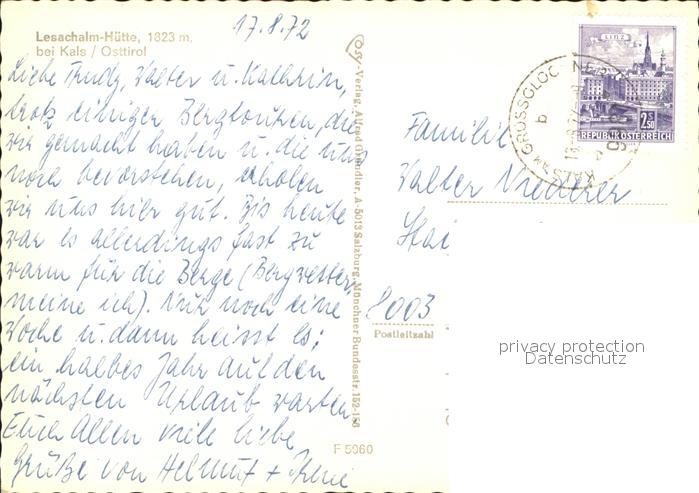 17.8.72
Lesachalm-Hütte, 1823 m,
bei Kals / Osttirol
Liebe Trudy, Walter u. Kathrin,
trotz einiger Bergtouren, die
wir gemacht haben u. die uns
noch bevorstehen, erholen
wir uns hier gut. Bis heute
war es allerdings fast zu
warm für die Berge (Bergwetter
meine ich). Nur noch eine
Woche u. dann heisst es:
ein halbes Jahr auf den
nächsten Urlaub warten
Euch Allen viele liebe
Grüße von Helmut + Irene
Ösy-Verlag, Alfred Gründler, A-5013 Salzburg, Münchner Bundesstr. 152-156
F 5960
LINZ
2.50
REPUBLIK ÖSTERREICH
KALS AM GROSSGLOCKNER
b
Familie
Walter Niederer
8003
Postleitzahl
privacy protection
Datenschutz